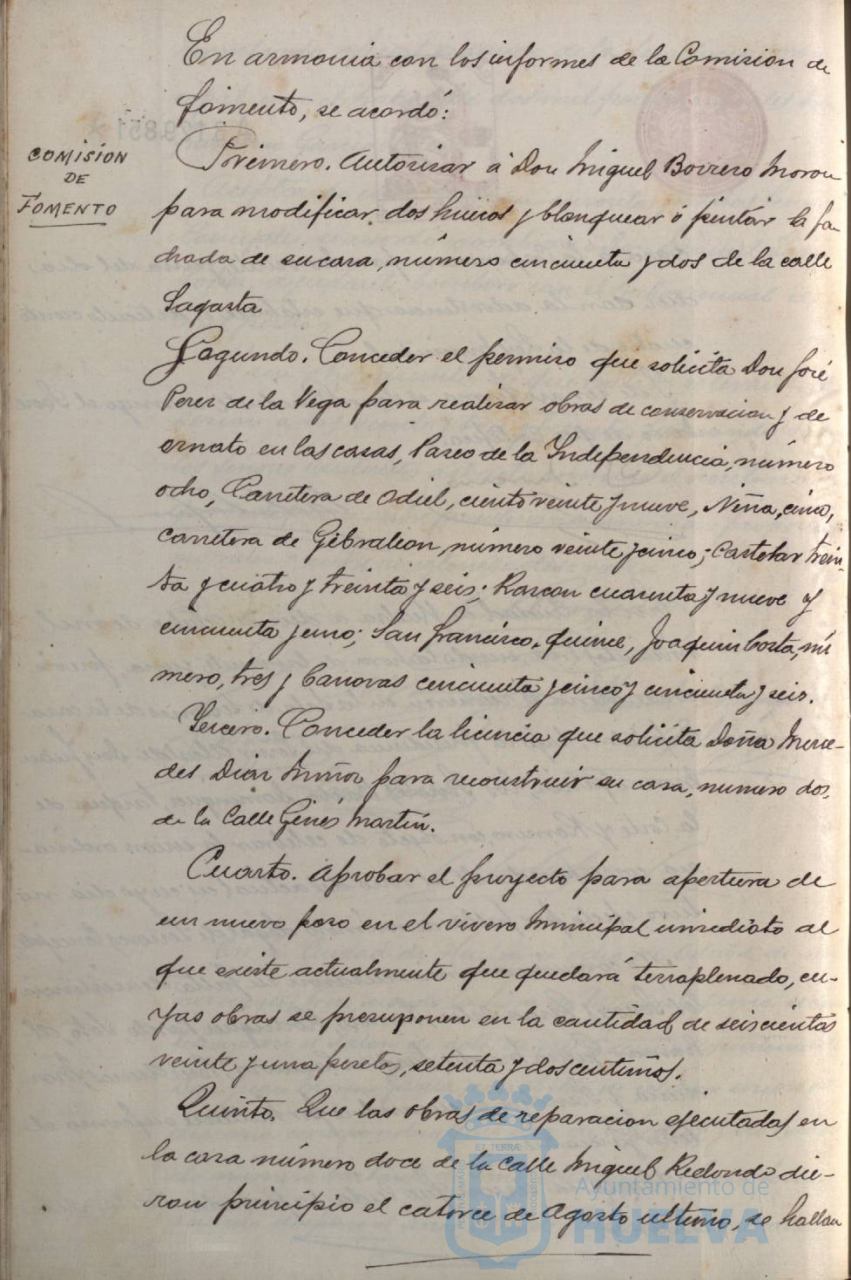 En armonia con los informes de la Comision de
fomento, se acordó:
COMISION
DE
FOMENTO
Primero. Autorizar á Don Miguel Borrero Moron
para modificar dos huecos y blanquear ó pintar la fa-
chada de su casa, número cincuenta y dos de la calle
Sagasta
Segundo. Conceder el permiso que solicita Don José
Perez de la Vega para realizar obras de conservacion y de
ornato en las casas, Paseo de la Independencia, número
ocho, Carretera de Odiel, ciento veinte y nueve, Niña, cinco,
carretera de Gibraleon, número veinte y cinco; Castelar trein-
ta y cuatro y treinta y seis; Rascon cuarenta y nueve y
cincuenta y uno; San Francisco, quince, Joaquin Costa, nú
mero, tres y Canovas cincuenta y cinco y cincuenta y seis.
Tercero. Conceder la licencia que solicita Doña Merce-
des Diaz Muñoz para reconstruir su casa, numero dos,
de la Calle Ginés Martín.
Cuarto. Aprobar el proyecto para apertura de
un nuevo pozo en el vivero Municipal inmediato al
que existe actualmente que quedará terraplenado, cu-
yas obras se presuponen en la cantidad de seiscientas
veinte y una pesetas, setenta y dos centimos.
Quinto. Que las obras de reparacion ejecutadas en
la casa número doce de la Calle Miguel Redondo die-
ron principio el catorce de Agosto ultimo, se hallan
Ayuntamiento de
HUELVA